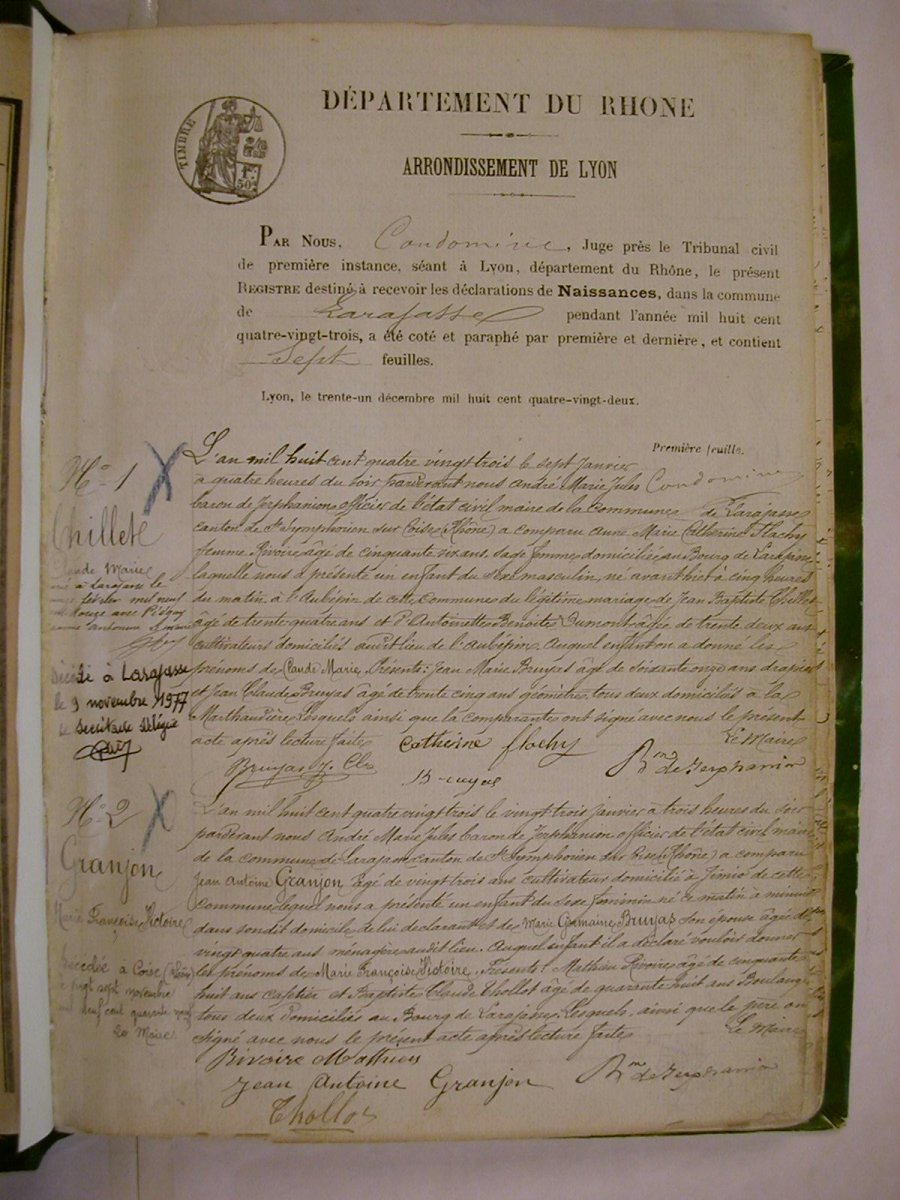 DÉPARTEMENT DU RHONE
TIMBRE
ARRONDISSEMENT DE LYON
PAR NOUS, Condomine, Juge près le Tribunal civil
de première instance, séant à Lyon, département du Rhône, le présent
REGISTRE destiné à recevoir les déclarations de Naissances, dans la commune
de Larajasse pendant l'année mil huit cent
quatre-vingt-trois, a été coté et paraphé par première et dernière, et contient
Sept feuilles.
Lyon, le trente-un décembre mil huit cent quatre-vingt-deux.
Première feuille.
Condomine
No 1
Chillet
Claude Marie
Décédé à Larajasse
le 9 novembre 1977
Le Secrétaire Délégué
L'an mil huit cent quatre vingt trois le sept Janvier
a quatre heures du soir pardevant nous André Marie Jules
baron de Jerphanion officier de l'état civil maire de la Commune de Larajasse
canton de St Symphorien sur Coise (Rhône) a comparu Anne Marie Catherine Flachy
femme Rivoire, âgé de cinquante six ans, sage femme domiciliée au Bourg de Larajasse
laquelle nous a présenté un enfant du sexe masculin, né avant hier à cinq heures
du matin, à l'Aubépin de cette Commune du légitime mariage de Jean Baptiste Chillet
âgé de trente quatre ans et d'Antoinette Benoite Dumont âgée de trente deux ans
cultivateurs domiciliés audit lieu de l'Aubépin. Auquel enfant on a donné les
prénoms de Claude Marie. Présents: Jean Marie Bruyas âgé de soixante onze ans
et Jean Claude Bruyas âgé de trente cinq ans géomètre, tous deux domiciliés à la
Marthaudière, Lesquels ainsi que la comparante ont signé avec nous le présent
acte après lecture faite. Le Maire
Catherine flachy
Bruyas J. Cl
Bruyas
Bon de Jerphanion
No 2
Granjon
Marie Françoise Victoire
Décédée à Coise (Rhône)
le vingt sept novembre
mil neuf cent quarante neuf
Le Maire
L'an mil huit cent quatre vingt trois le vingt trois janvier à trois heures du soir
pardevant nous André Marie Jules baron de Jerphanion officier de l'état civil maire
de la commune de Larajasse canton de St Symphorien sur Coise (Rhône) a comparu
Jean Antoine Granjon âgé de vingt trois ans cultivateur domicilié à de cette
commune lequel nous a présenté un enfant du sexe féminin né ce matin à minuit
dans son dit domicile de lui déclarant et de Marie Germaine Bruyas son épouse âgé de
vingt quatre ans ménagère audit lieu. Auquel enfant il a déclaré vouloir donner
les prénoms de Marie Françoise Victoire. Présents: Mathieu Rivoire âgé de cinquante
huit ans cafetier et Baptiste Claude Thollot âgé de quarante huit ans Boulanger
tous deux domiciliés au Bourg de Larajasse, Lesquels, ainsi que le père ont
signé avec nous le présent acte après lecture faite. Le Maire
Rivoire Mathieu
Jean Antoine Granjon
Bon de Jerphanion
Thollot